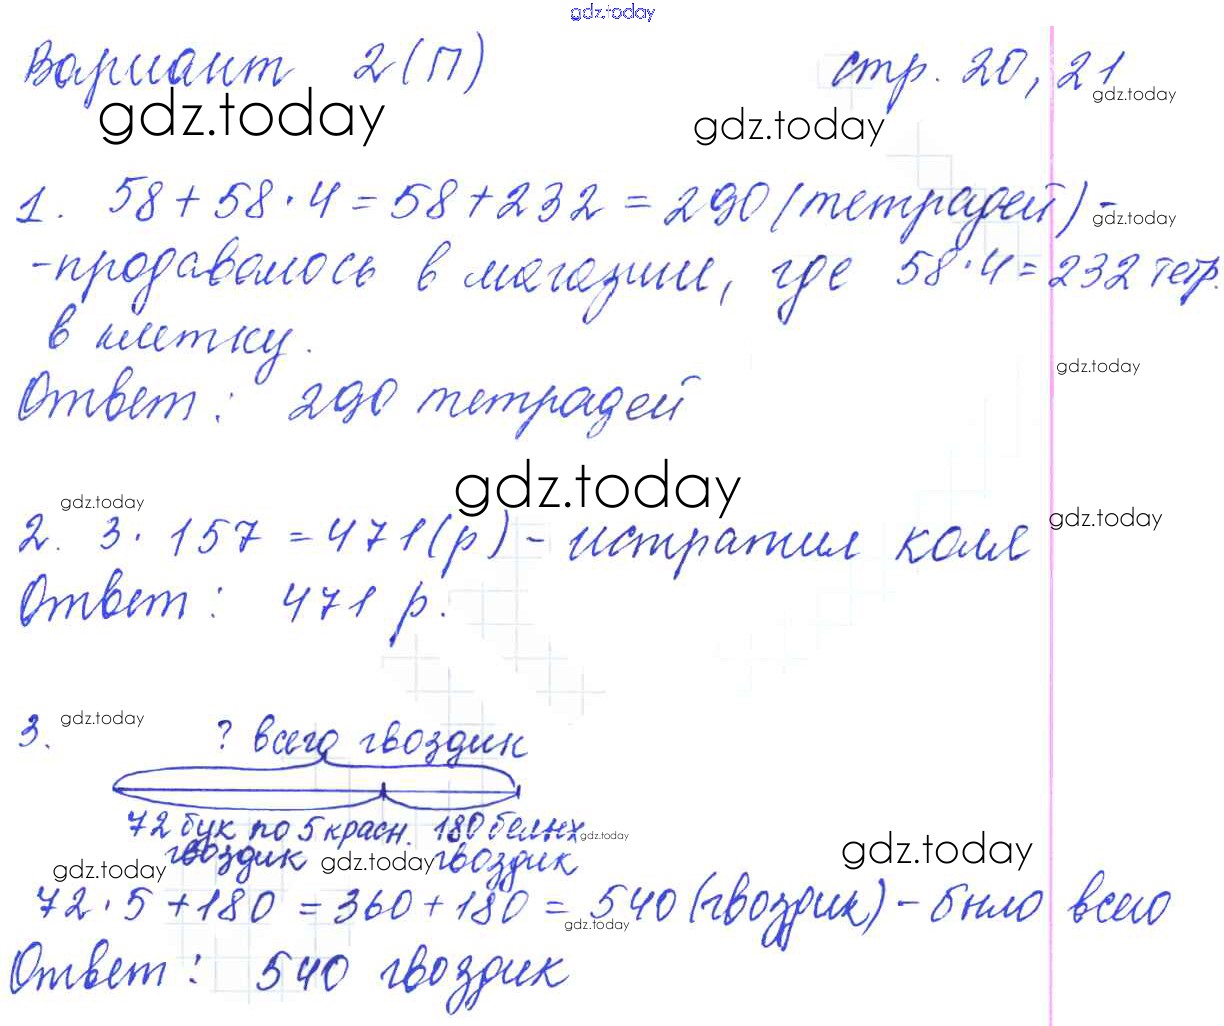 gdz.today
Вариант 2(П) стр. 20, 21
gdz.today gdz.today gdz.today
1. 58 + 58 · 4 = 58 + 232 = 290 (тетрадей) -
gdz.today
- продавалось в магазине, где 58 · 4 = 232 тетр.
в клетку.
gdz.today
Ответ: 290 тетрадей
gdz.today
gdz.today gdz.today
2. 3 · 157 = 471 (р) - истратил Коля
Ответ: 471 р.
gdz.today
3. ? всего гвоздик
72 бук по 5 красн. 180 белых
gdz.today
гвоздик гвоздик
gdz.today gdz.today gdz.today
72 · 5 + 180 = 360 + 180 = 540 (гвоздик) - было всего
gdz.today
Ответ: 540 гвоздик